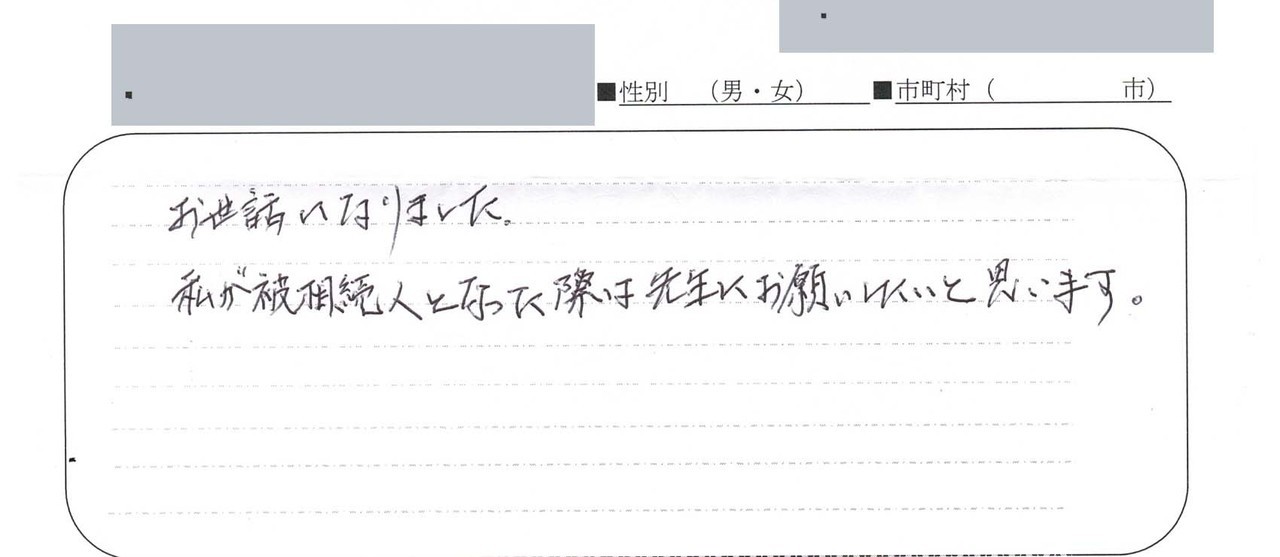 ■性別 (男・女) ■市町村( 市)
お世話になりました。
私が被相続人となった際は先生にお願いしたいと思います。